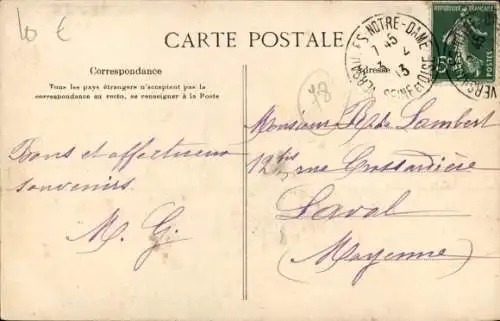 10 €
CARTE POSTALE
RÉPUBLIQUE FRANÇAISE
VERSAILLES NOTRE-DAME
7 45
3 2
13
SEINE ET OISE
Correspondance
Adresse
Tous les pays étrangers n'acceptent pas la
correspondance au recto, se renseigner à la Poste
78
Monsieur Lambert
12 bis rue Crossardière
Laval
(Mayenne)
Bons et affectueux
souvenirs.
M. G.